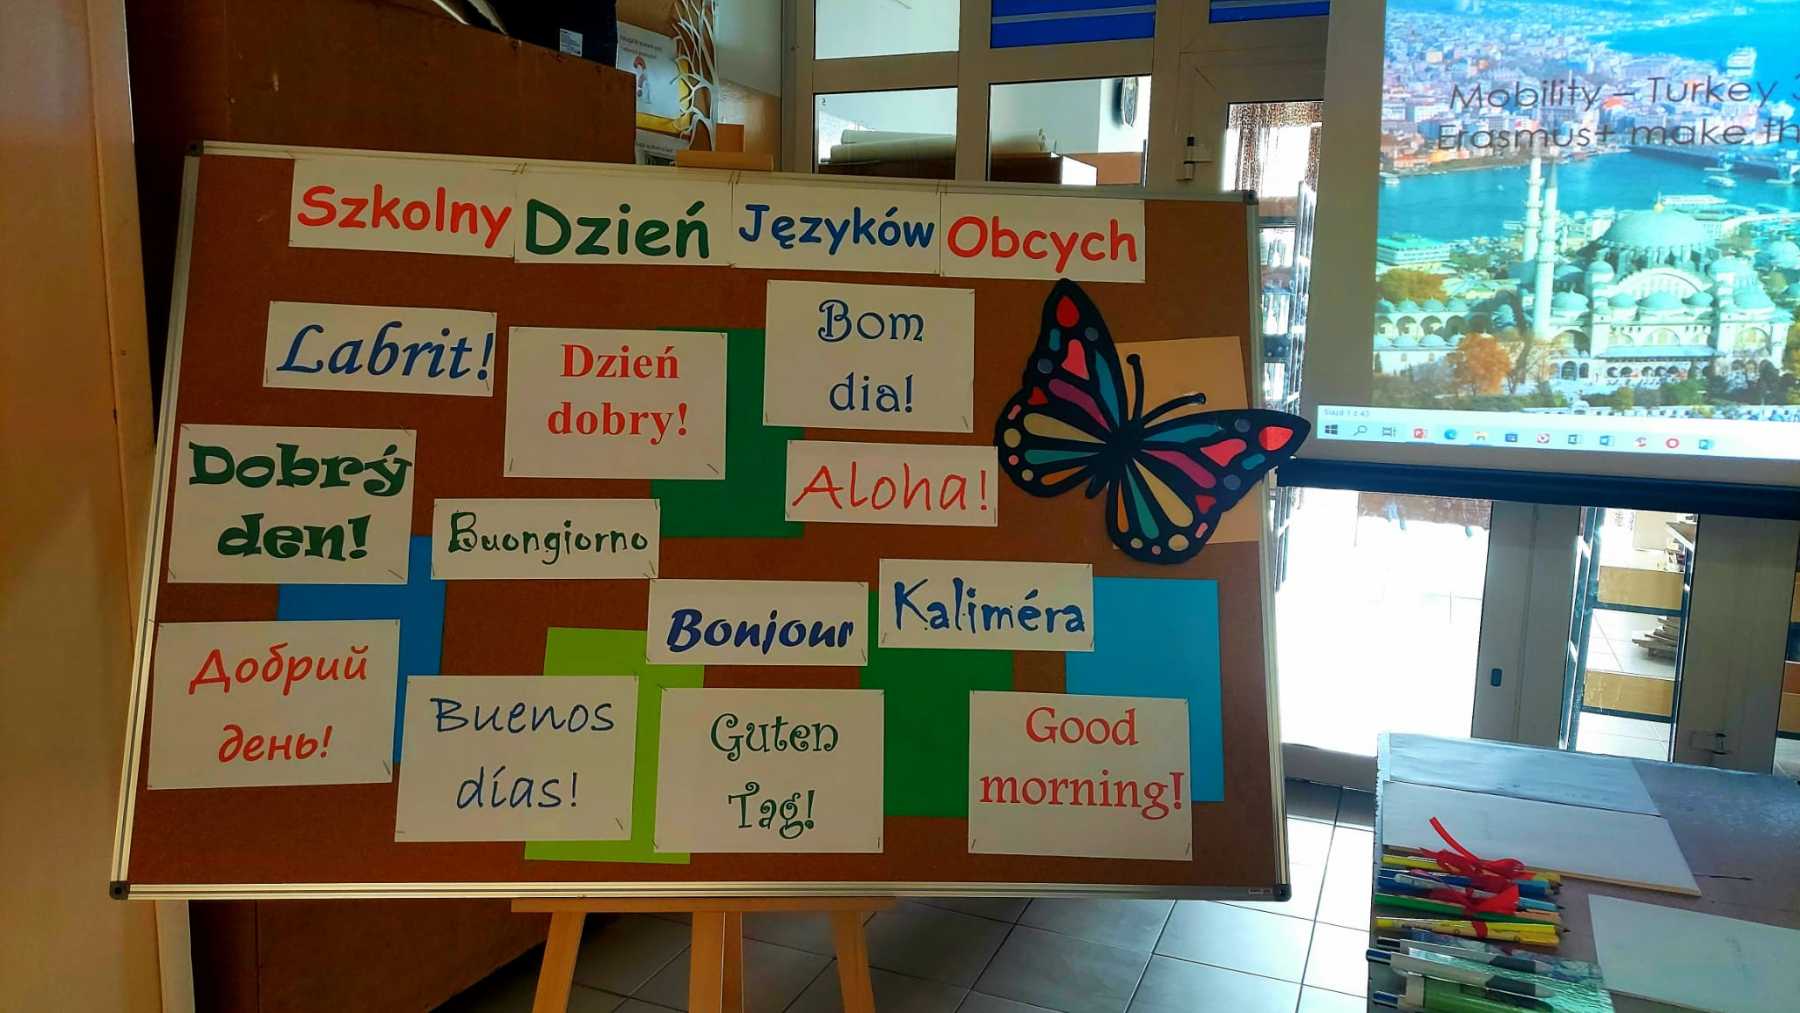 Szkolny Dzień Języków Obcych
Labrit!
Dzień
dobry!
Bom
dia!
Dobrý
den!
Buongiorno
Aloha!
Bonjour
Kaliméra
Добрий
день!
Buenos
días!
Guten
Tag!
Good
morning!
Mobility – Turkey
Erasmus+ make
Slajd 1 z 43